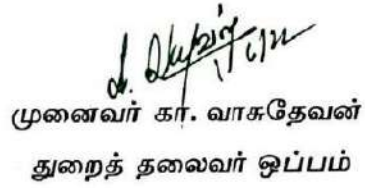 முனைவர் கா. வாசுதேவன்
துறைத் தலைவர் ஒப்பம்